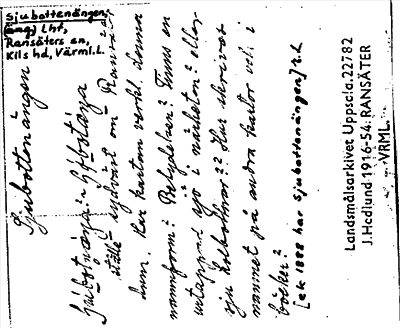 Sjubottenängen,
(äng) Lht,
Ransäters sn,
Kils hd, Värml.l.
Sjubottenängen
ställe sydväst om Ransäter
Har kartan verkl. denna
namnform? Betydelsen? Finns en
uttappad sjö i närheten? eller
sju kolbottnar?? Hur skrives
namnet på andra kartor o. i
böcker?
[ek 1888 har Sjubottenängen] R.L.
Landsmålsarkivet Uppsala. 22782
J. Hedlund 1916-54: RANSÄTER
VRML.